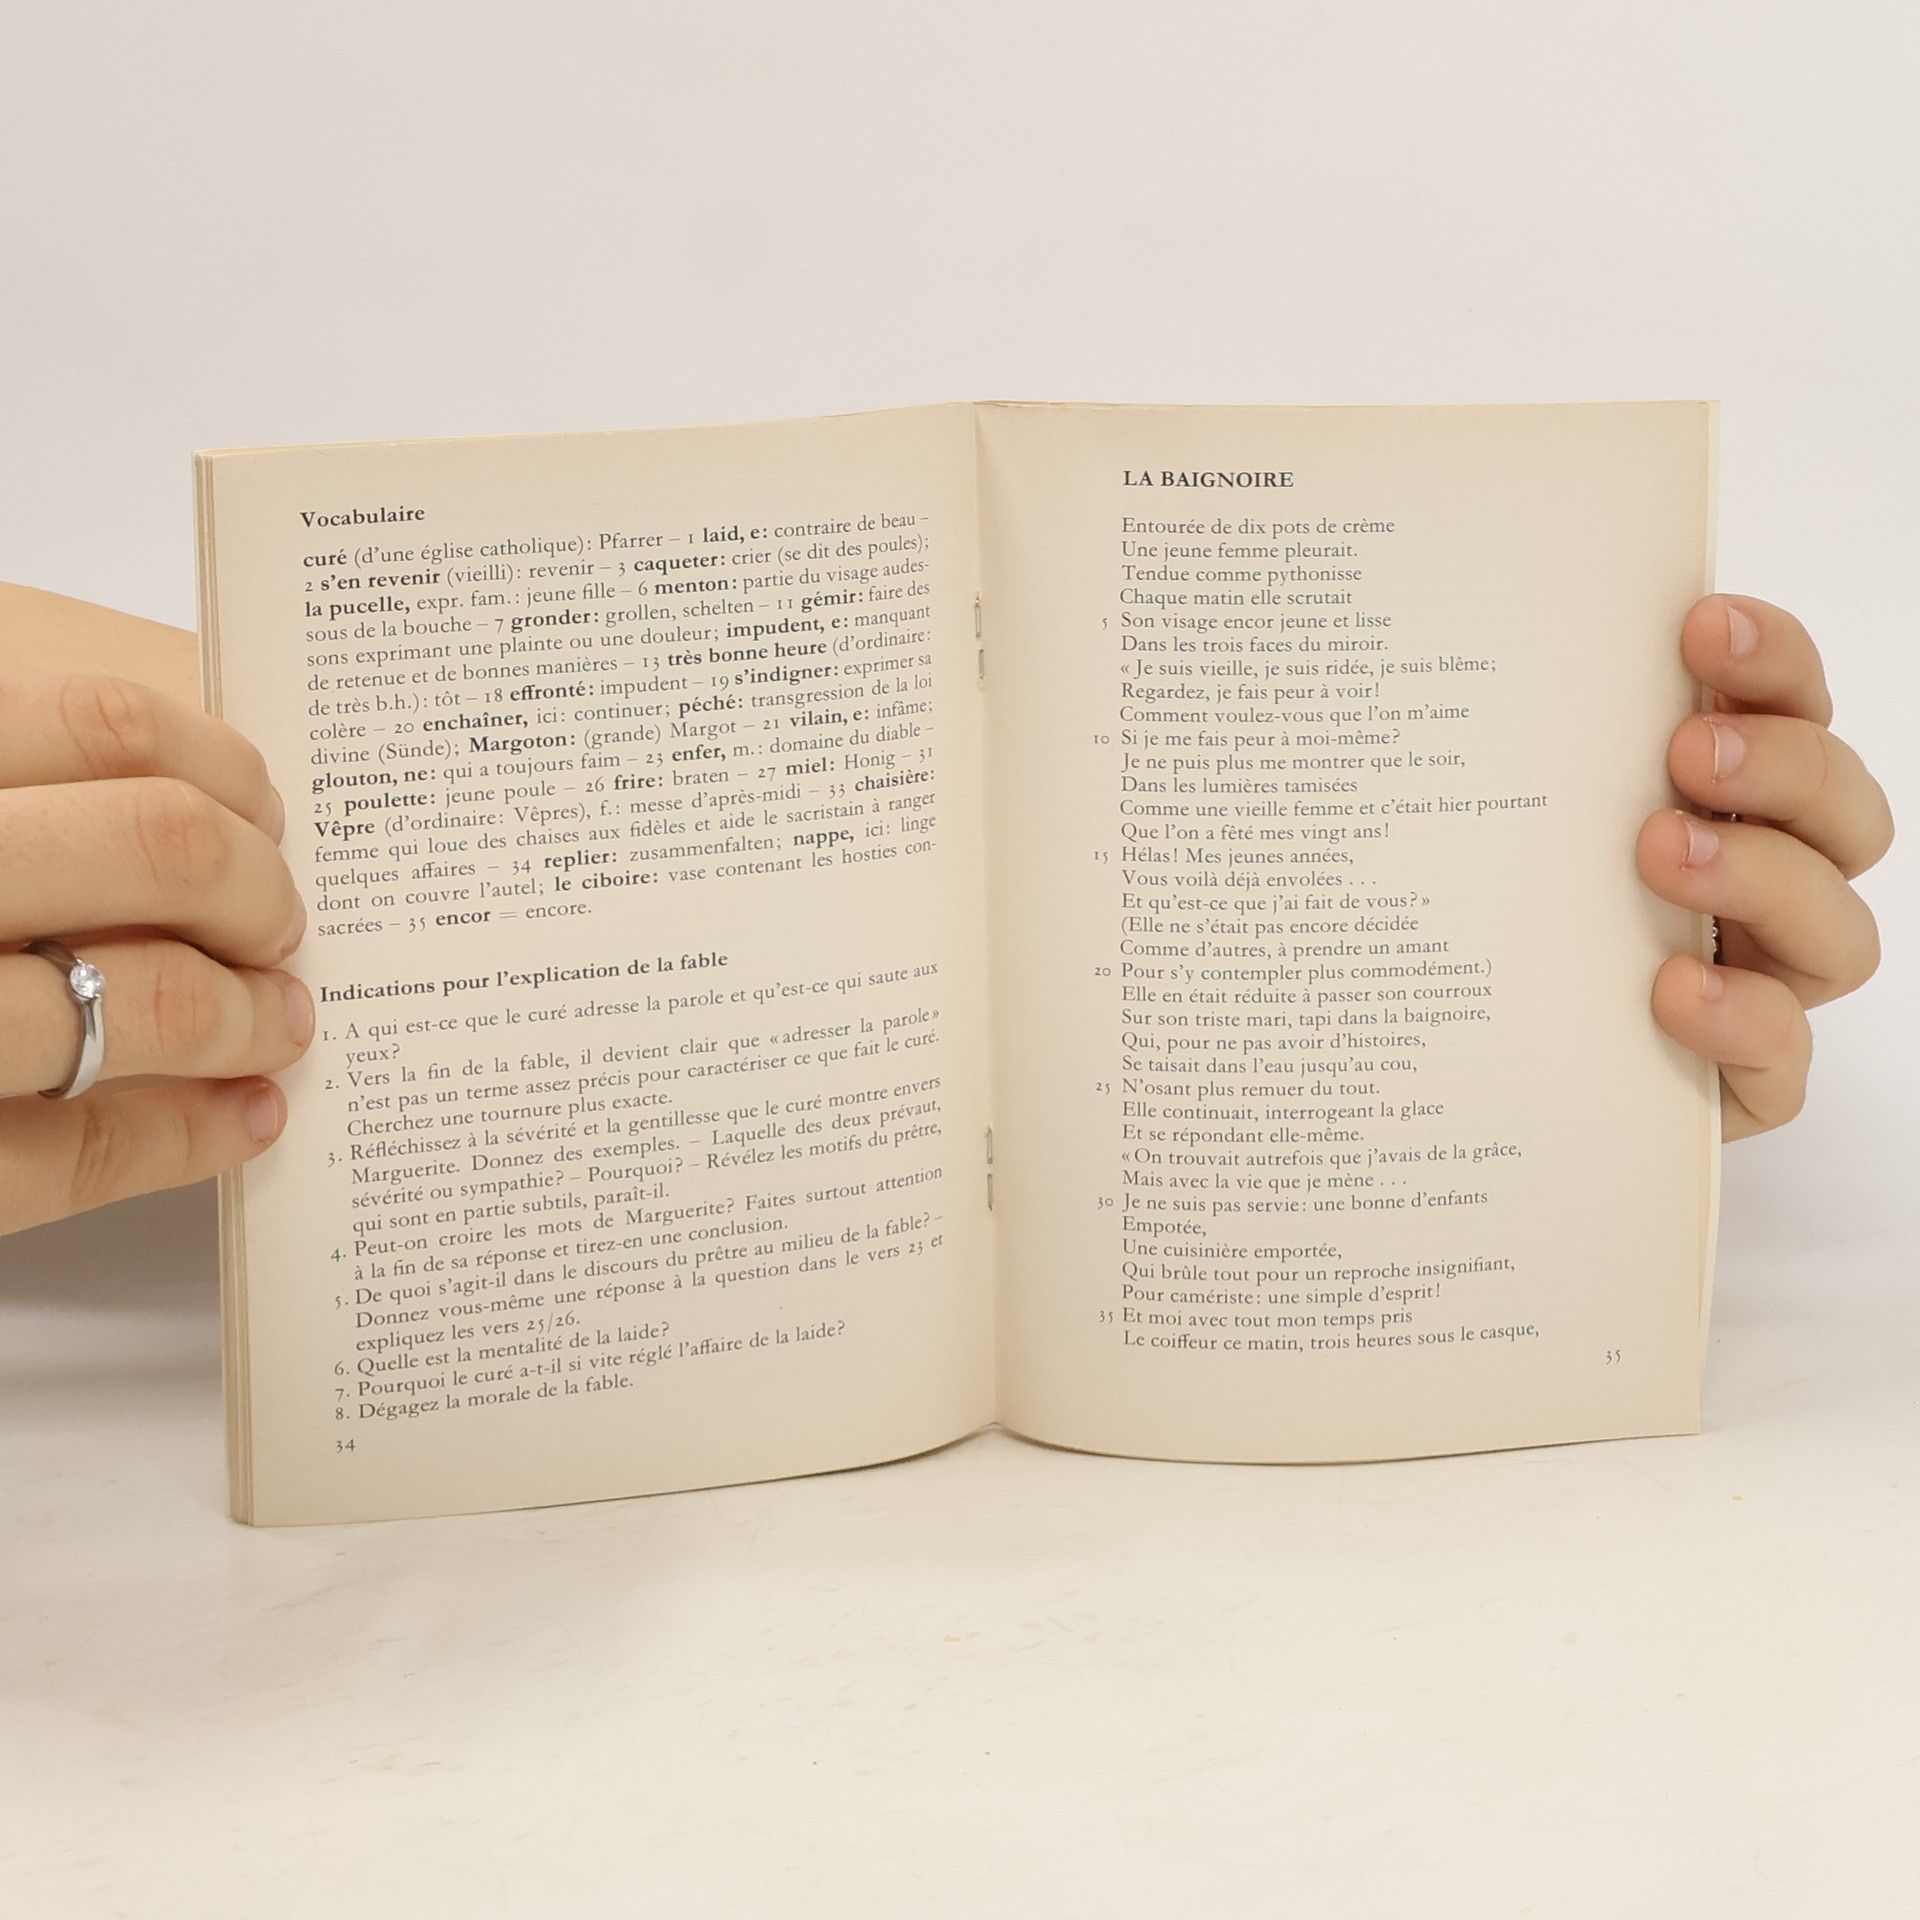 Vocabulaire
curé (d'une église catholique): Pfarrer – 1 laid, e: contraire de beau –
2 s'en revenir (vieilli): revenir – 3 caqueter: crier (se dit des poules);
la pucelle, expr. fam.: jeune fille – 6 menton: partie du visage audes-
sous de la bouche – 7 gronder: grollen, schelten – 11 gémir: faire des
sons exprimant une plainte ou une douleur; impudent, e: manquant
de retenue et de bonnes manières – 13 très bonne heure (d'ordinaire:
de très b.h.): tôt – 18 effronté: impudent – 19 s'indigner: exprimer sa
colère – 20 enchaîner, ici: continuer; péché: transgression de la loi
divine (Sünde); Margoton: (grande) Margot – 21 vilain, e: infâme;
glouton, ne: qui a toujours faim – 23 enfer, m.: domaine du diable –
25 poulette: jeune poule – 26 frire: braten – 27 miel: Honig – 31
Vêpre (d'ordinaire: Vêpres), f.: messe d'après-midi – 33 chaisière:
femme qui loue des chaises aux fidèles et aide le sacristain à ranger
quelques affaires – 34 replier: zusammenfalten; nappe, ici: linge
dont on couvre l'autel; le ciboire: vase contenant les hosties con-
sacrées – 35 encor = encore.
Indications pour l'explication de la fable
1. A qui est-ce que le curé adresse la parole et qu'est-ce qui saute aux
yeux?
2. Vers la fin de la fable, il devient clair que «adresser la parole»
n'est pas un terme assez précis pour caractériser ce que fait le curé.
Cherchez une tournure plus exacte.
3. Réfléchissez à la sévérité et la gentillesse que le curé montre envers
Marguerite. Donnez des exemples. – Laquelle des deux prévaut,
sévérité ou sympathie? – Pourquoi? – Révélez les motifs du prêtre,
qui sont en partie subtils, paraît-il.
4. Peut-on croire les mots de Marguerite? Faites surtout attention
à la fin de sa réponse et tirez-en une conclusion.
5. De quoi s'agit-il dans le discours du prêtre au milieu de la fable? –
Donnez vous-même une réponse à la question dans le vers 23 et
expliquez les vers 25/26.
6. Quelle est la mentalité de la laide?
7. Pourquoi le curé a-t-il si vite réglé l'affaire de la laide?
8. Dégagez la morale de la fable.
34
LA BAIGNOIRE
Entourée de dix pots de crème
Une jeune femme pleurait.
Tendue comme pythonisse
Chaque matin elle scrutait
5 Son visage encor jeune et lisse
Dans les trois faces du miroir.
«Je suis vieille, je suis ridée, je suis blême;
Regardez, je fais peur à voir!
Comment voulez-vous que l'on m'aime
10 Si je me fais peur à moi-même?
Je ne puis plus me montrer que le soir,
Dans les lumières tamisées
Comme une vieille femme et c'était hier pourtant
Que l'on a fêté mes vingt ans!
15 Hélas! Mes jeunes années,
Vous voilà déjà envolées . . .
Et qu'est-ce que j'ai fait de vous?»
(Elle ne s'était pas encore décidée
Comme d'autres, à prendre un amant
20 Pour s'y contempler plus commodément.)
Elle en était réduite à passer son courroux
Sur son triste mari, tapi dans la baignoire,
Qui, pour ne pas avoir d'histoires,
Se taisait dans l'eau jusqu'au cou,
25 N'osant plus remuer du tout.
Elle continuait, interrogeant la glace
Et se répondant elle-même.
«On trouvait autrefois que j'avais de la grâce,
Mais avec la vie que je mène . . .
30 Je ne suis pas servie: une bonne d'enfants
Empotée,
Une cuisinière emportée,
Qui brûle tout pour un reproche insignifiant,
Pour camériste: une simple d'esprit!
35 Et moi avec tout mon temps pris
Le coiffeur ce matin, trois heures sous le casque,
35